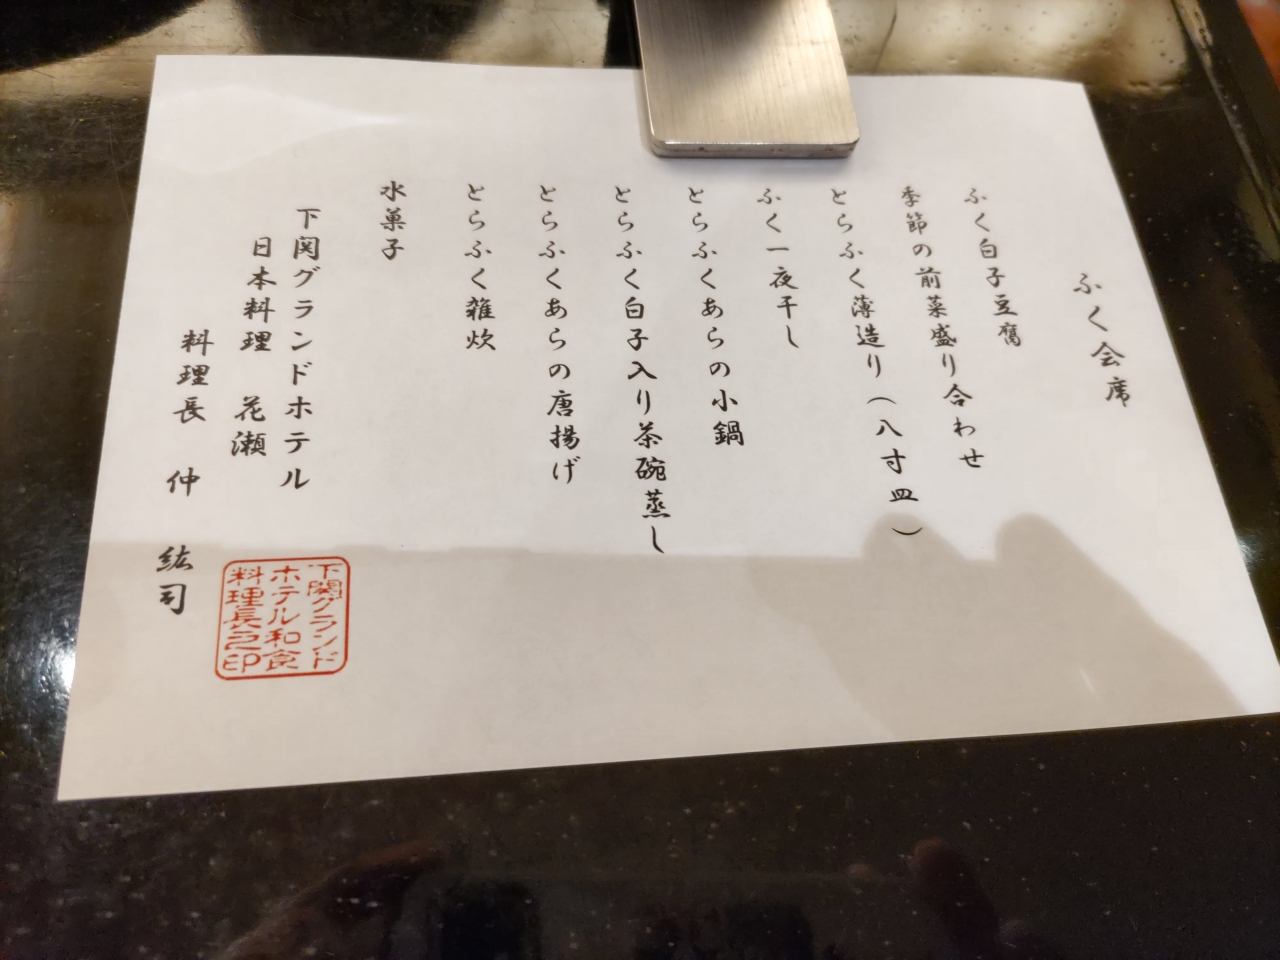 ふく会席
ふく白子豆腐
季節の前菜盛り合わせ
とらふく薄造り(八寸皿)
ふく一夜干し
とらふくあらの小鍋
とらふく白子入り茶碗蒸し
とらふくあらの唐揚げ
とらふく雑炊
水菓子
下関グランドホテル
日本料理 花瀬
料理長 仲 紘司
下関グランド
ホテル和食
料理長之印